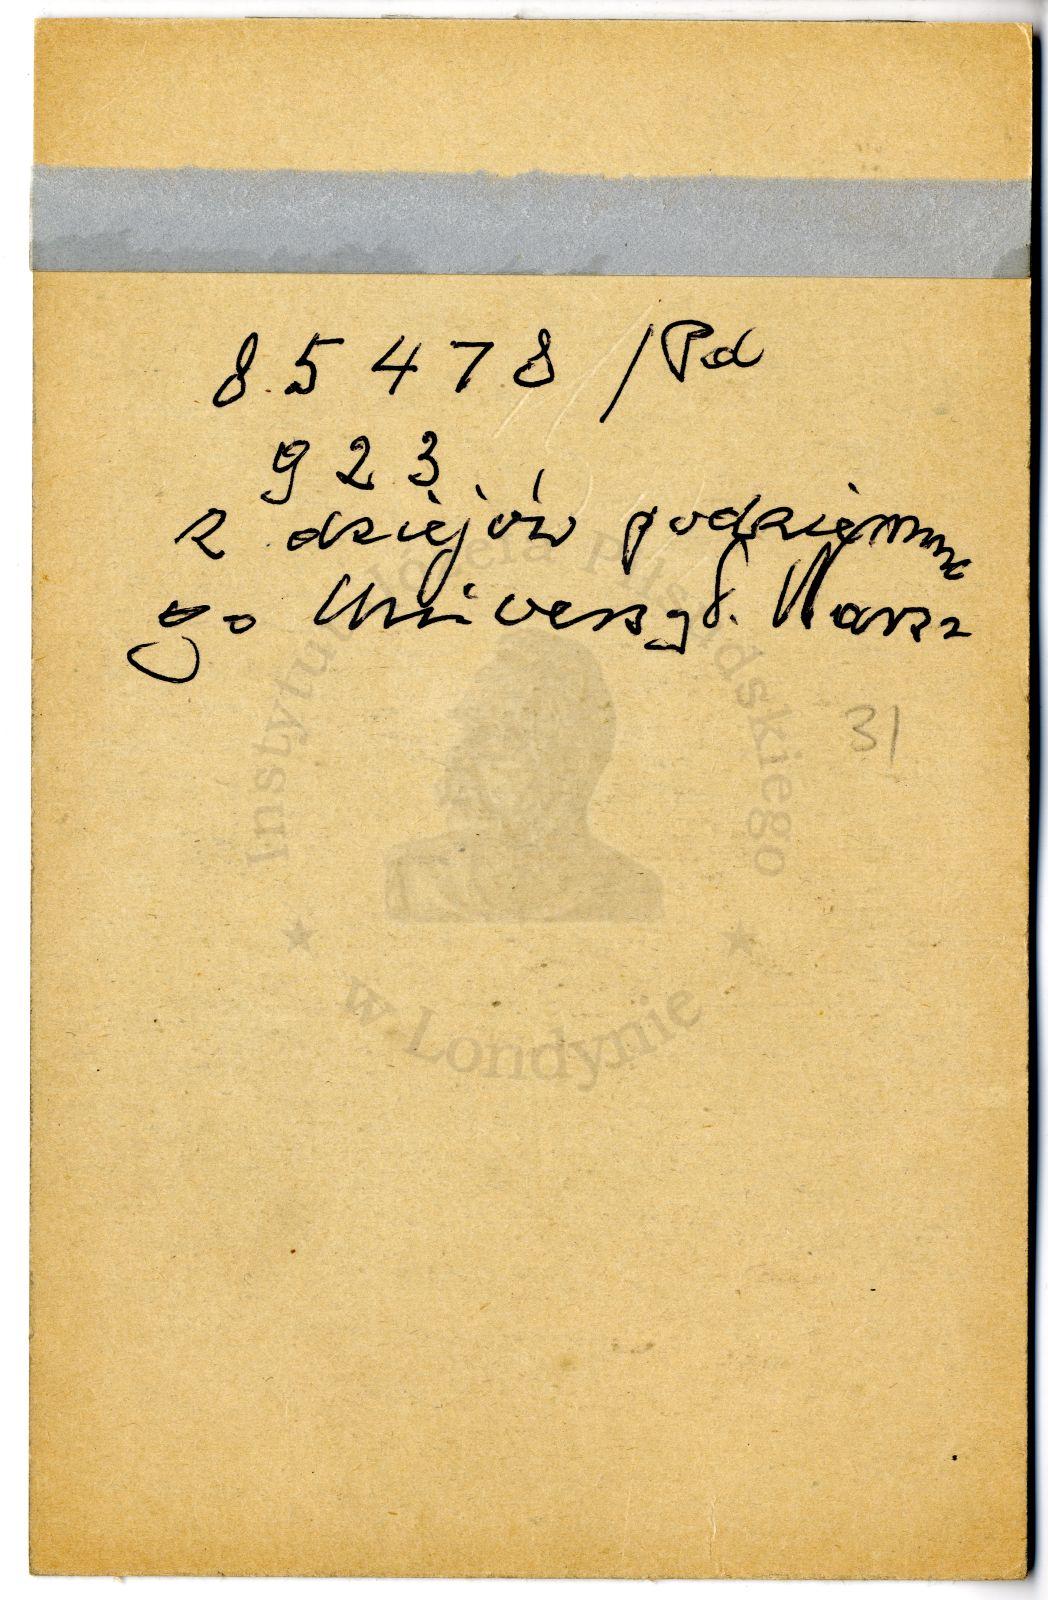 85478/Pd
923
z dziejów podziemne
go Uniwersyt. Warsz
31
Instytut Józefa Piłsudskiego
★ w Londynie ★